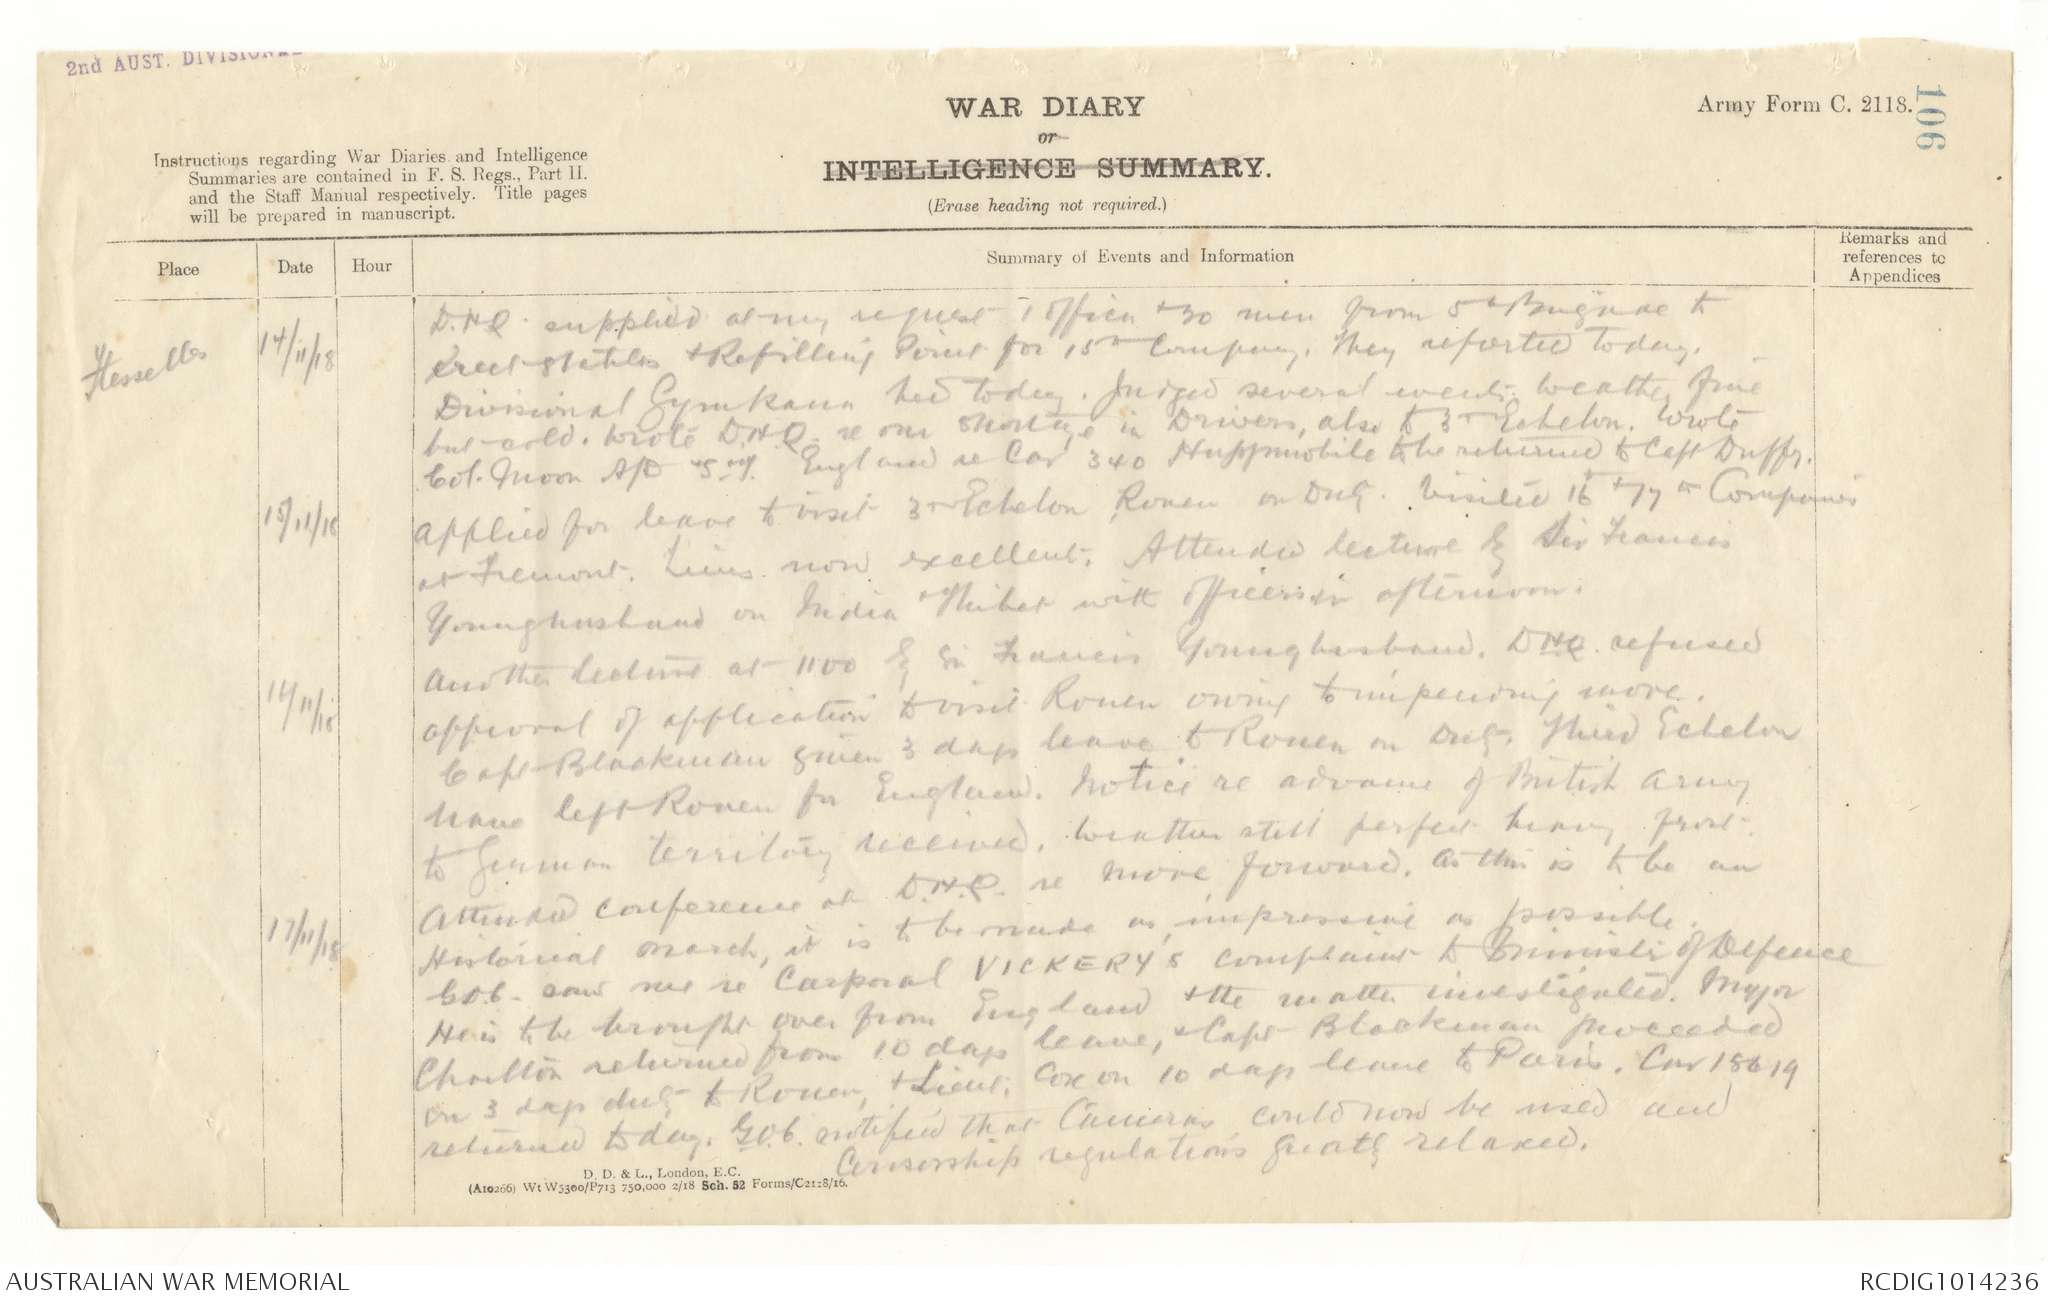 2nd AUST. DIVISIONAL
106
Army Form C. 2118.
WAR DIARY
or
INTELLIGENCE SUMMARY.
(Erase heading not required.)
Instructions regarding War Diaries and Intelligence
Summaries are contained in F. S. Regs., Part II.
and the Staff Manual respectively. Title pages
will be prepared in manuscript.
Place
Date
Hour
Summary of Events and Information
Remarks and
references to
Appendices
Flesselles
14/11/18
D.H.Q. supplied at my request 1 officer + 30 men from 5th Brigade to
erect stables + Refilling Point for 15th Company. They reported today.
Divisional Gymkana held today. Judged several events. Weather fine
but cold. Wrote D.H.Q. re our shortage in Drivers, also to 3rd Echelon. Wrote
Col. Moon England re Car 340 Huppmobile to be returned to Capt Duffy.
15/11/18
Applied for leave to visit 3rd Echelon Rouen on Duty. Visited 16 + 17th Companies
at Fremont. Lines now excellent. Attended lecture by Sir Francis
Younghusband on India + Thibet with officers in afternoon.
16/11/18
Another lecture at 1100 by Sir Francis Younghusband. DHQ. refused
approval of application to visit Rouen owing to impending move.
Capt Blackman given 3 days leave to Rouen on Duty. Third Echelon
have left Rouen for England. Notice re advance of British Army
to German territory received. Weather still perfect heavy frost.
17/11/18
Attended conference at D.H.Q. re move forward. As this is to be an
Historical march, it is to be made as impressive as possible.
G.O.C. saw me re Corporal VICKERY'S complaint to Minister of Defence
He is to be brought over from England + the matter investigated. Major
Charlton returned from 10 days leave, + Capt Blackman proceeded
on 3 days duty to Rouen, + Lieut. Cox on 10 days leave to Paris. Car 18619
returned today. G.O.C. notified that Cameras could now be used and
Censorship regulations greatly relaxed.
D. D. & L., London, E.C.
(A10266) Wt W5300/P713 750,000 2/18 Sch. 52 Forms/C2118/16.
AUSTRALIAN WAR MEMORIAL
RCDIG1014236